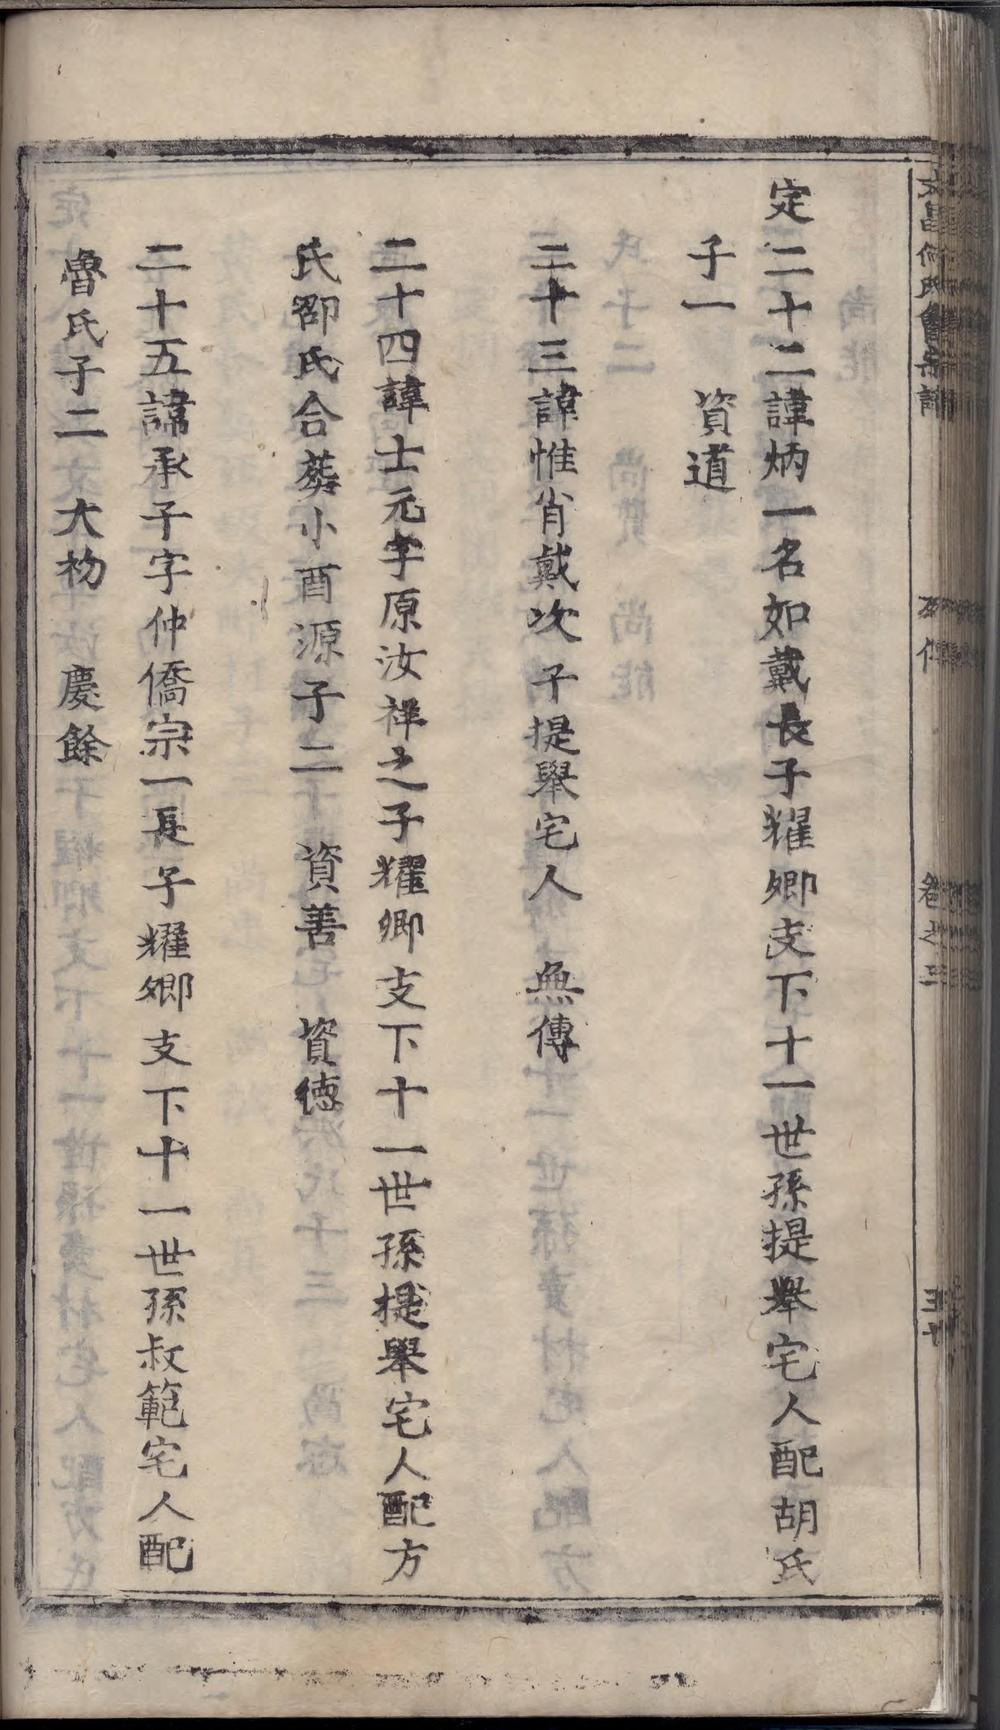 文昌何氏會宗譜
卷之三
定二十二諱炳一名如戴長子耀卿支下十一世孫提舉宅人配胡氏
子一　資道
二十三諱惟肖戴次子提舉宅人　無傳
二十四諱士元字原汝祥之子耀卿支下十一世孫提舉宅人配方
氏邵氏合葬小酉源子二　資善　資德
二十五諱承子字仲僑宗一長子耀卿支下十一世孫叔範宅人配
魯氏子二　大礽　慶餘